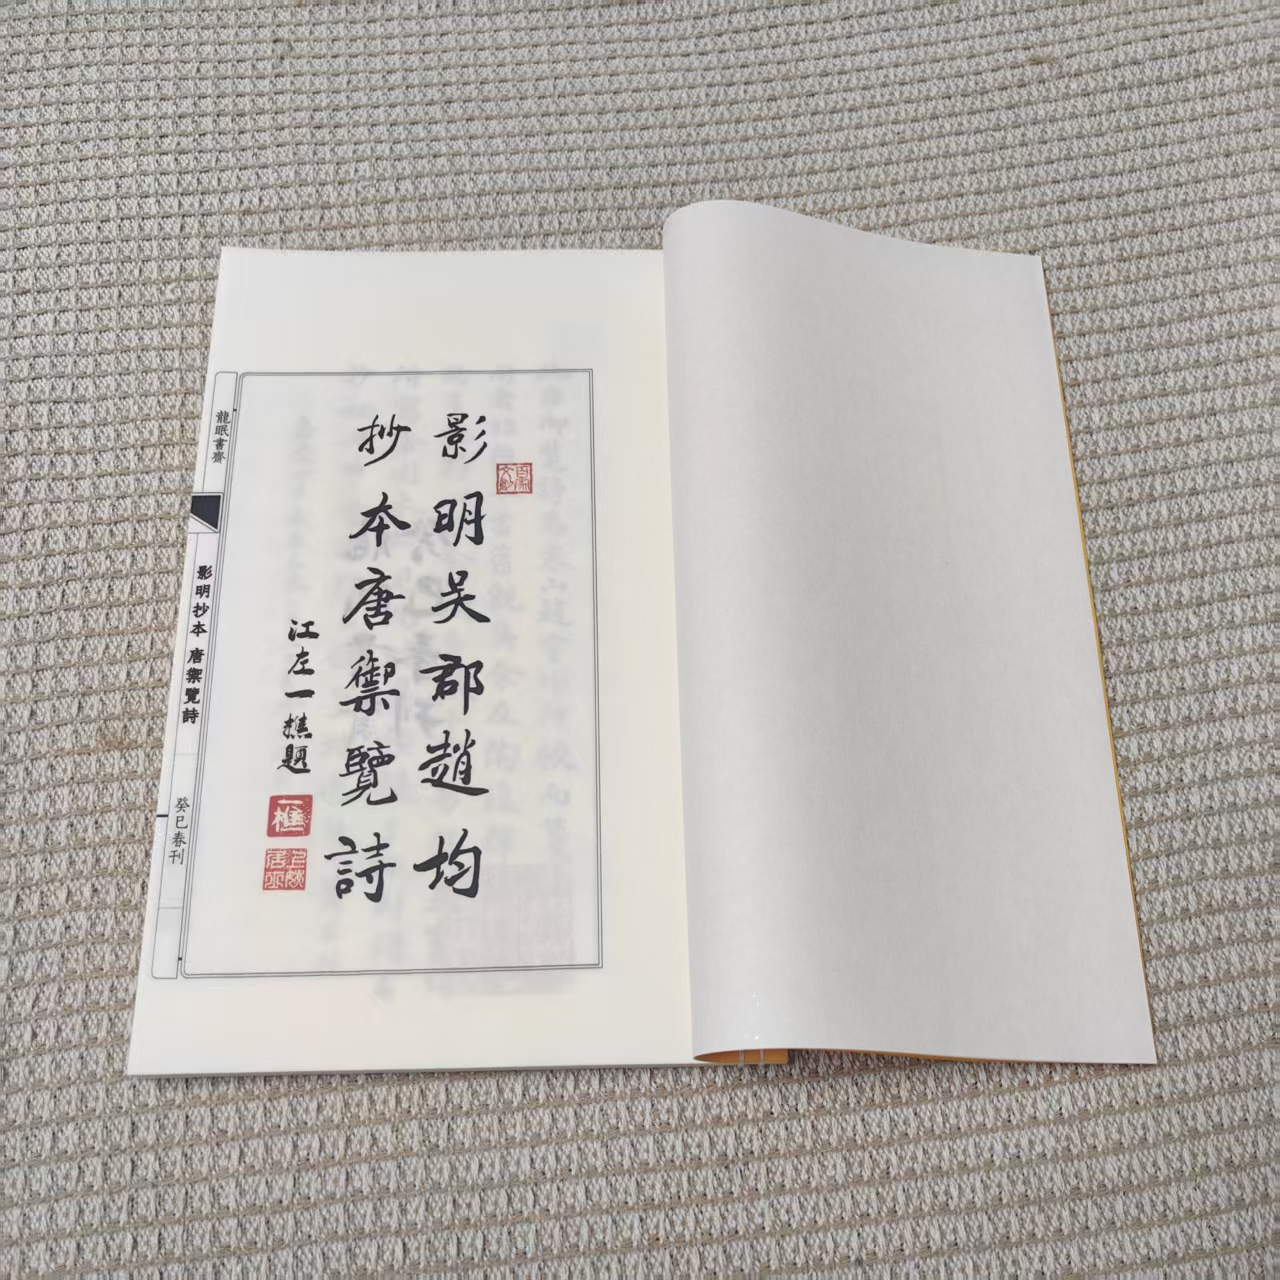 影明吴郡趙均
抄本唐禦覽詩
江左一樵題
一樵
龍眠書齋
影明抄本 唐禦覽詩
癸巳春刊